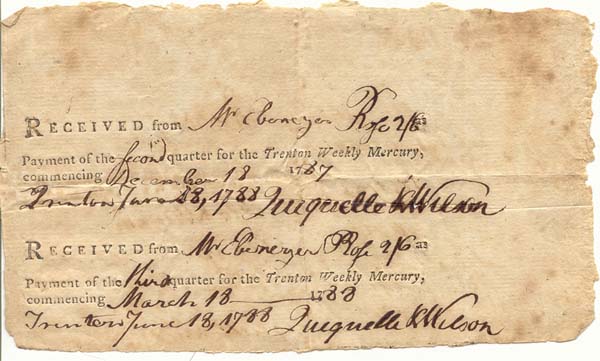 RECEIVED from Mr Ebenezer Rose 2/6 as
Payment of the second quarter for the Trenton Weekly Mercury,
commencing December 18 1787
Trenton 18, 1788 Quequelle & Wilson
RECEIVED from Mr Ebenezer Rose 2/6 as
Payment of the third quarter for the Trenton Weekly Mercury,
commencing March 18 1788
Trenton June 18, 1788 Quequelle & Wilson